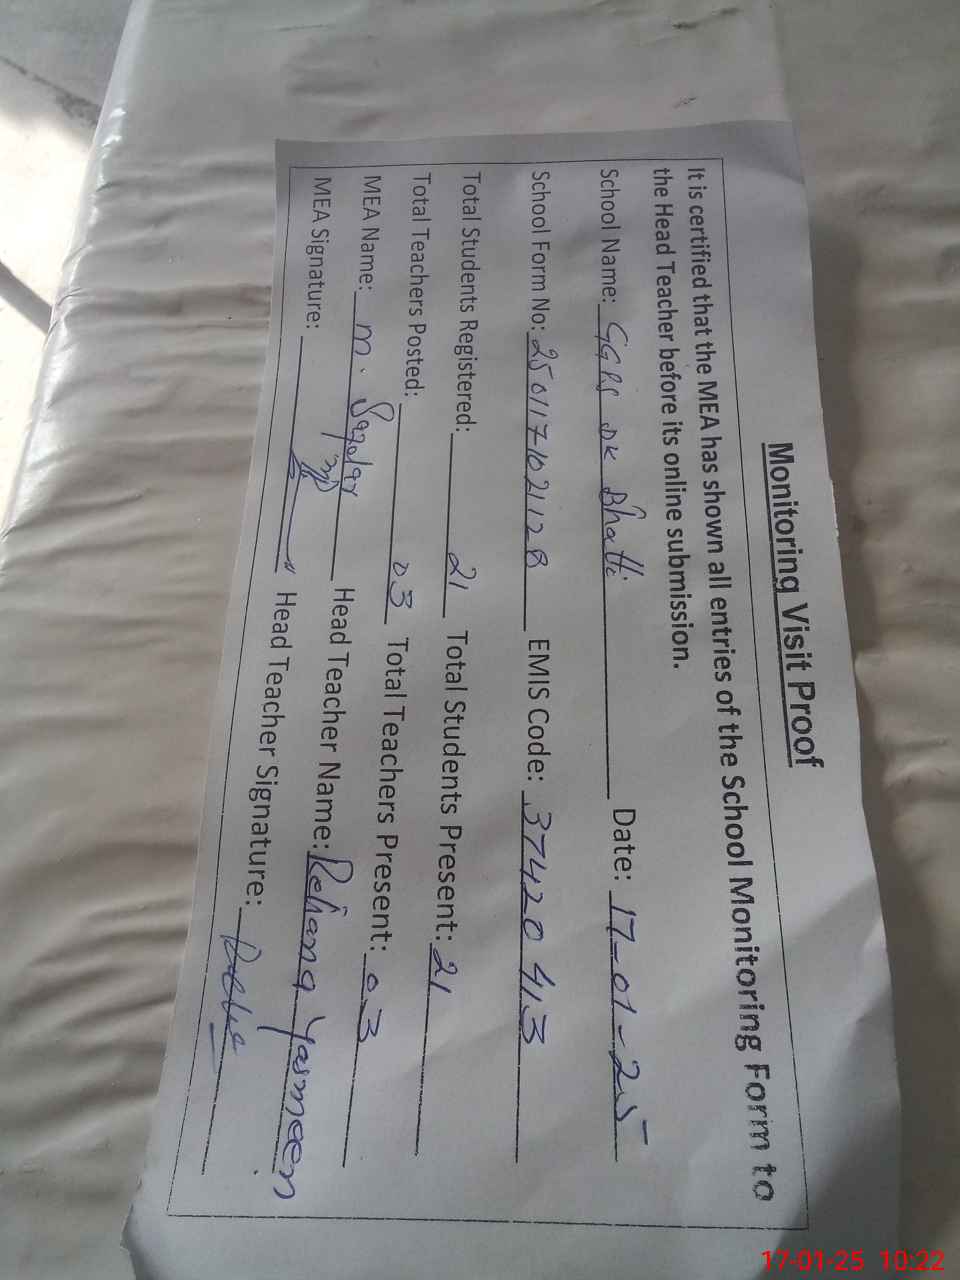 Monitoring Visit Proof
It is certified that the MEA has shown all entries of the School Monitoring Form to
the Head Teacher before its online submission.
School Name: GGPS DK Bhatti Date: 17-01-25
School Form No: 2501171021128 EMIS Code: 37420413
Total Students Registered: 21 Total Students Present: 21
Total Teachers Posted: 03 Total Teachers Present: 03
MEA Name: M. Head Teacher Name: Rehana Yasmeen
MEA Signature: Head Teacher Signature:
17-01-25 10:22